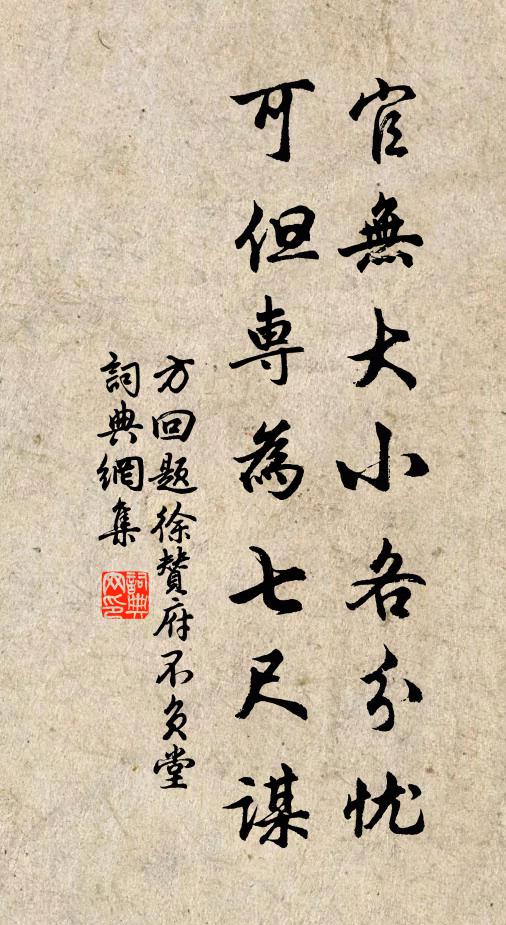 官無大小各分忧
可但専為七尺谋
方回题徐赞府不负堂
詞典網集
詞典网印